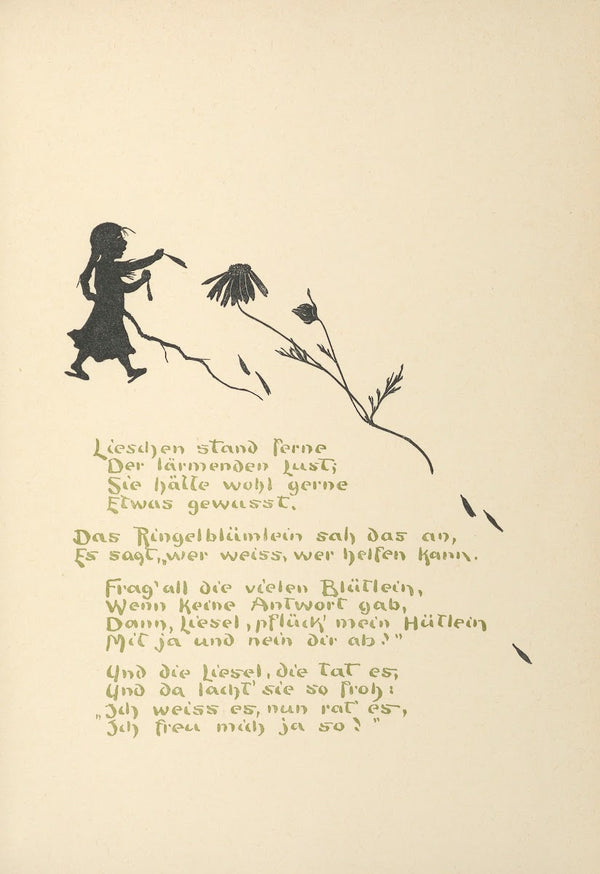 Lieschen stand ferne
Der lärmenden Lust;
Sie hätte wohl gerne
Etwas gewusst.
Das Ringelblümlein sah das an,
Es sagt „wer weiss, wer helfen kann.
Frag' all die vielen Blütlein,
Wenn keine Antwort gab,
Dann, Liesel, pflück' mein Hütlein
Mit ja und nein dir ab!"
Und die Liesel, die tat es,
Und da lacht' sie so froh:
„Ich weiss es, nun rat' es,
Ich freu mich ja so!"